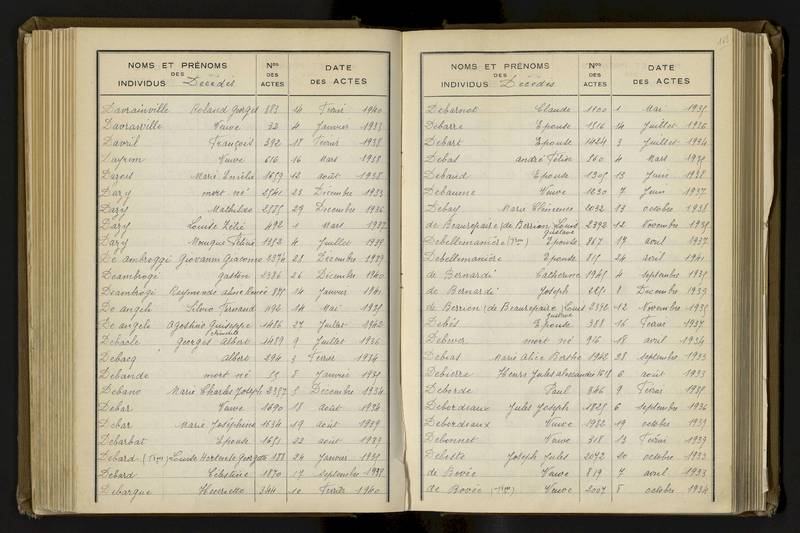 NOMS ET PRÉNOMS
DES
INDIVIDUS Décédés
Nos
DES
ACTES
DATE
DES ACTES
Davrainville Roland Georges 883 14 Février 1940
Davrainville Veuve 32 4 Janvier 1933
Davril François 392 18 Février 1938
Veuve 616 16 Mars 1938
1659 12 août 1938
Dazy mort né 2541 23 Décembre 1933
Dazy Mathilde 2585 29 Décembre 1936
Dazy Louise 492 1 Mars 1937
Dazy 1352 4 Juillet 1939
De ambroggi Giovanni Giacomo 2374 28 Décembre 1939
Deambrogi gaston 2386 26 Décembre 1940
Deambrogi Raymonde 14 Janvier 1941
De angeli Silvio Fernand 14 Mai
De angelis Agostino Guiseppe 1486 27 Juillet 1942
Debacle Georges Albert 1489 9 Juillet 1936
Debacq Albert 294 3 Février 1934
Debande mort né 8 Janvier
Debano Marie Charles Joseph 2357 5 Décembre 1934
Debar Veuve 1690 18 août 1934
Debar Marie Joséphine 1634 19 août 1939
Debarbat Epouse 1651 22 août 1939
Debard Georgette 24 Janvier
Debard Célestine 1870 17 septembre
Debarque Henriette 344 10 Février 1940
NOMS ET PRÉNOMS
DES
INDIVIDUS Décédés
Nos
DES
ACTES
DATE
DES ACTES
Debarnot Claude 1100 1 Mai
Debarre Epouse 1516 14 Juillet 1936
Debart Epouse 1424 3 Juillet 1934
Debas andré Félix 560 4 Mars
Debaud Epouse 1305 13 Juin 1938
Debaume Veuve 1230 7 Juin 1937
Debay Marie Clémence 2032 13 octobre 1938
de Beaurepaire (de Berrion) Louis 2392 12 Novembre
gustave
Debellemanière Epouse 867 17 avril 1937
Debellemanière Epouse 24 avril 1941
de Bernardi Catherine 4 septembre
de Bernardi Joseph 8 Décembre 1939
de Berrion (de Beaurepaire) Louis 12 Novembre
gustave
Debès Epouse 388 16 Février 1937
mort né 916 18 avril 1934
Marie Alice Berthe 1942 28 septembre 1933
Debierre Henri Jules alexandre 6 août 1933
Deborde Paul 346 9 Février
Debordeaux Jules Joseph 6 septembre 1936
Debordeaux Veuve 1982 19 octobre
Debonnet Veuve 318 13 Février 1939
Deboste Joseph Jules 2072 20 octobre 1933
de Bovée Veuve 819 7 avril 1933
de Bovée Veuve 2007 8 octobre 1934